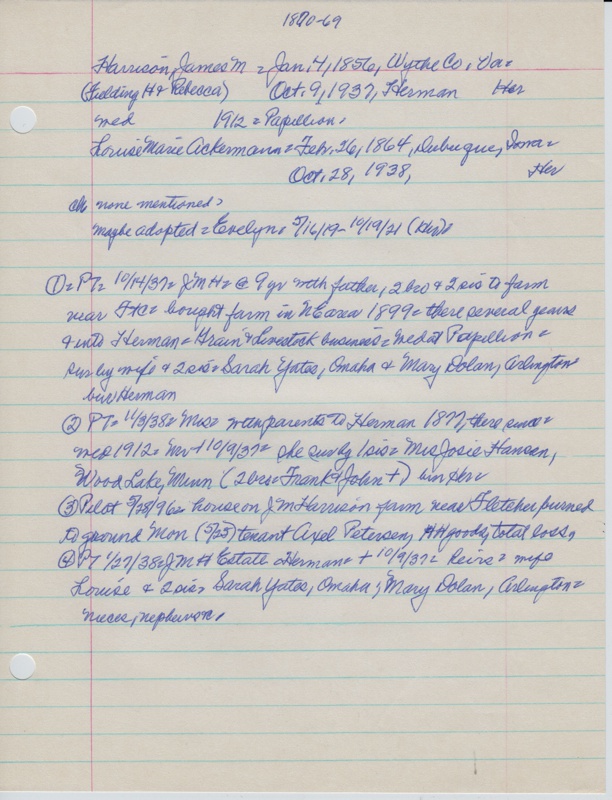 1870-69
Harrison, James M = Jan. 4, 1856, Wythe Co, Va=
(Fielding H & Rebecca) Oct. 9, 1937, Herman Her
med 1912 = Papillion,
Louise Marie Ackermann = Febr. 26, 1864, Dubuque, Iowa =
Oct. 28, 1938, Her
ch none mentioned =
maybe adopted = Evelyn, 5/16/19 - 10/19/21 (Her)
① = PT = 10/14/37 = JMH = @ 9 yr with father, 2 bro & 2 sis to farm
near = bought farm in area 1899 = there several years
& into Herman = Grain & Livestock business = wed at Papillion =
surv by wife & 2 sis = Sarah Yates, Omaha & Mary Dolan, Arlington =
bur Herman
② PT = 11/3/38 = Mrs = with parents to Herman 1877, there since =
med 1912 = Mr + 10/9/37 = she surv by 1 sis = Mrs Josie Hansen,
Wood Lake, Minn (2 bro = Frank & John +) bur Her =
③ Pilot 5/28/96 = house on JM Harrison farm near Fletcher burned
to ground Mon (5/25) tenant Axel Petersen, HH goods, total loss,
④ PT 1/27/38 = JMH Estate = Herman = + 10/9/37 = heirs = wife
Louise & 2 sis = Sarah Yates, Omaha; Mary Dolan, Arlington =
nieces, nephews,